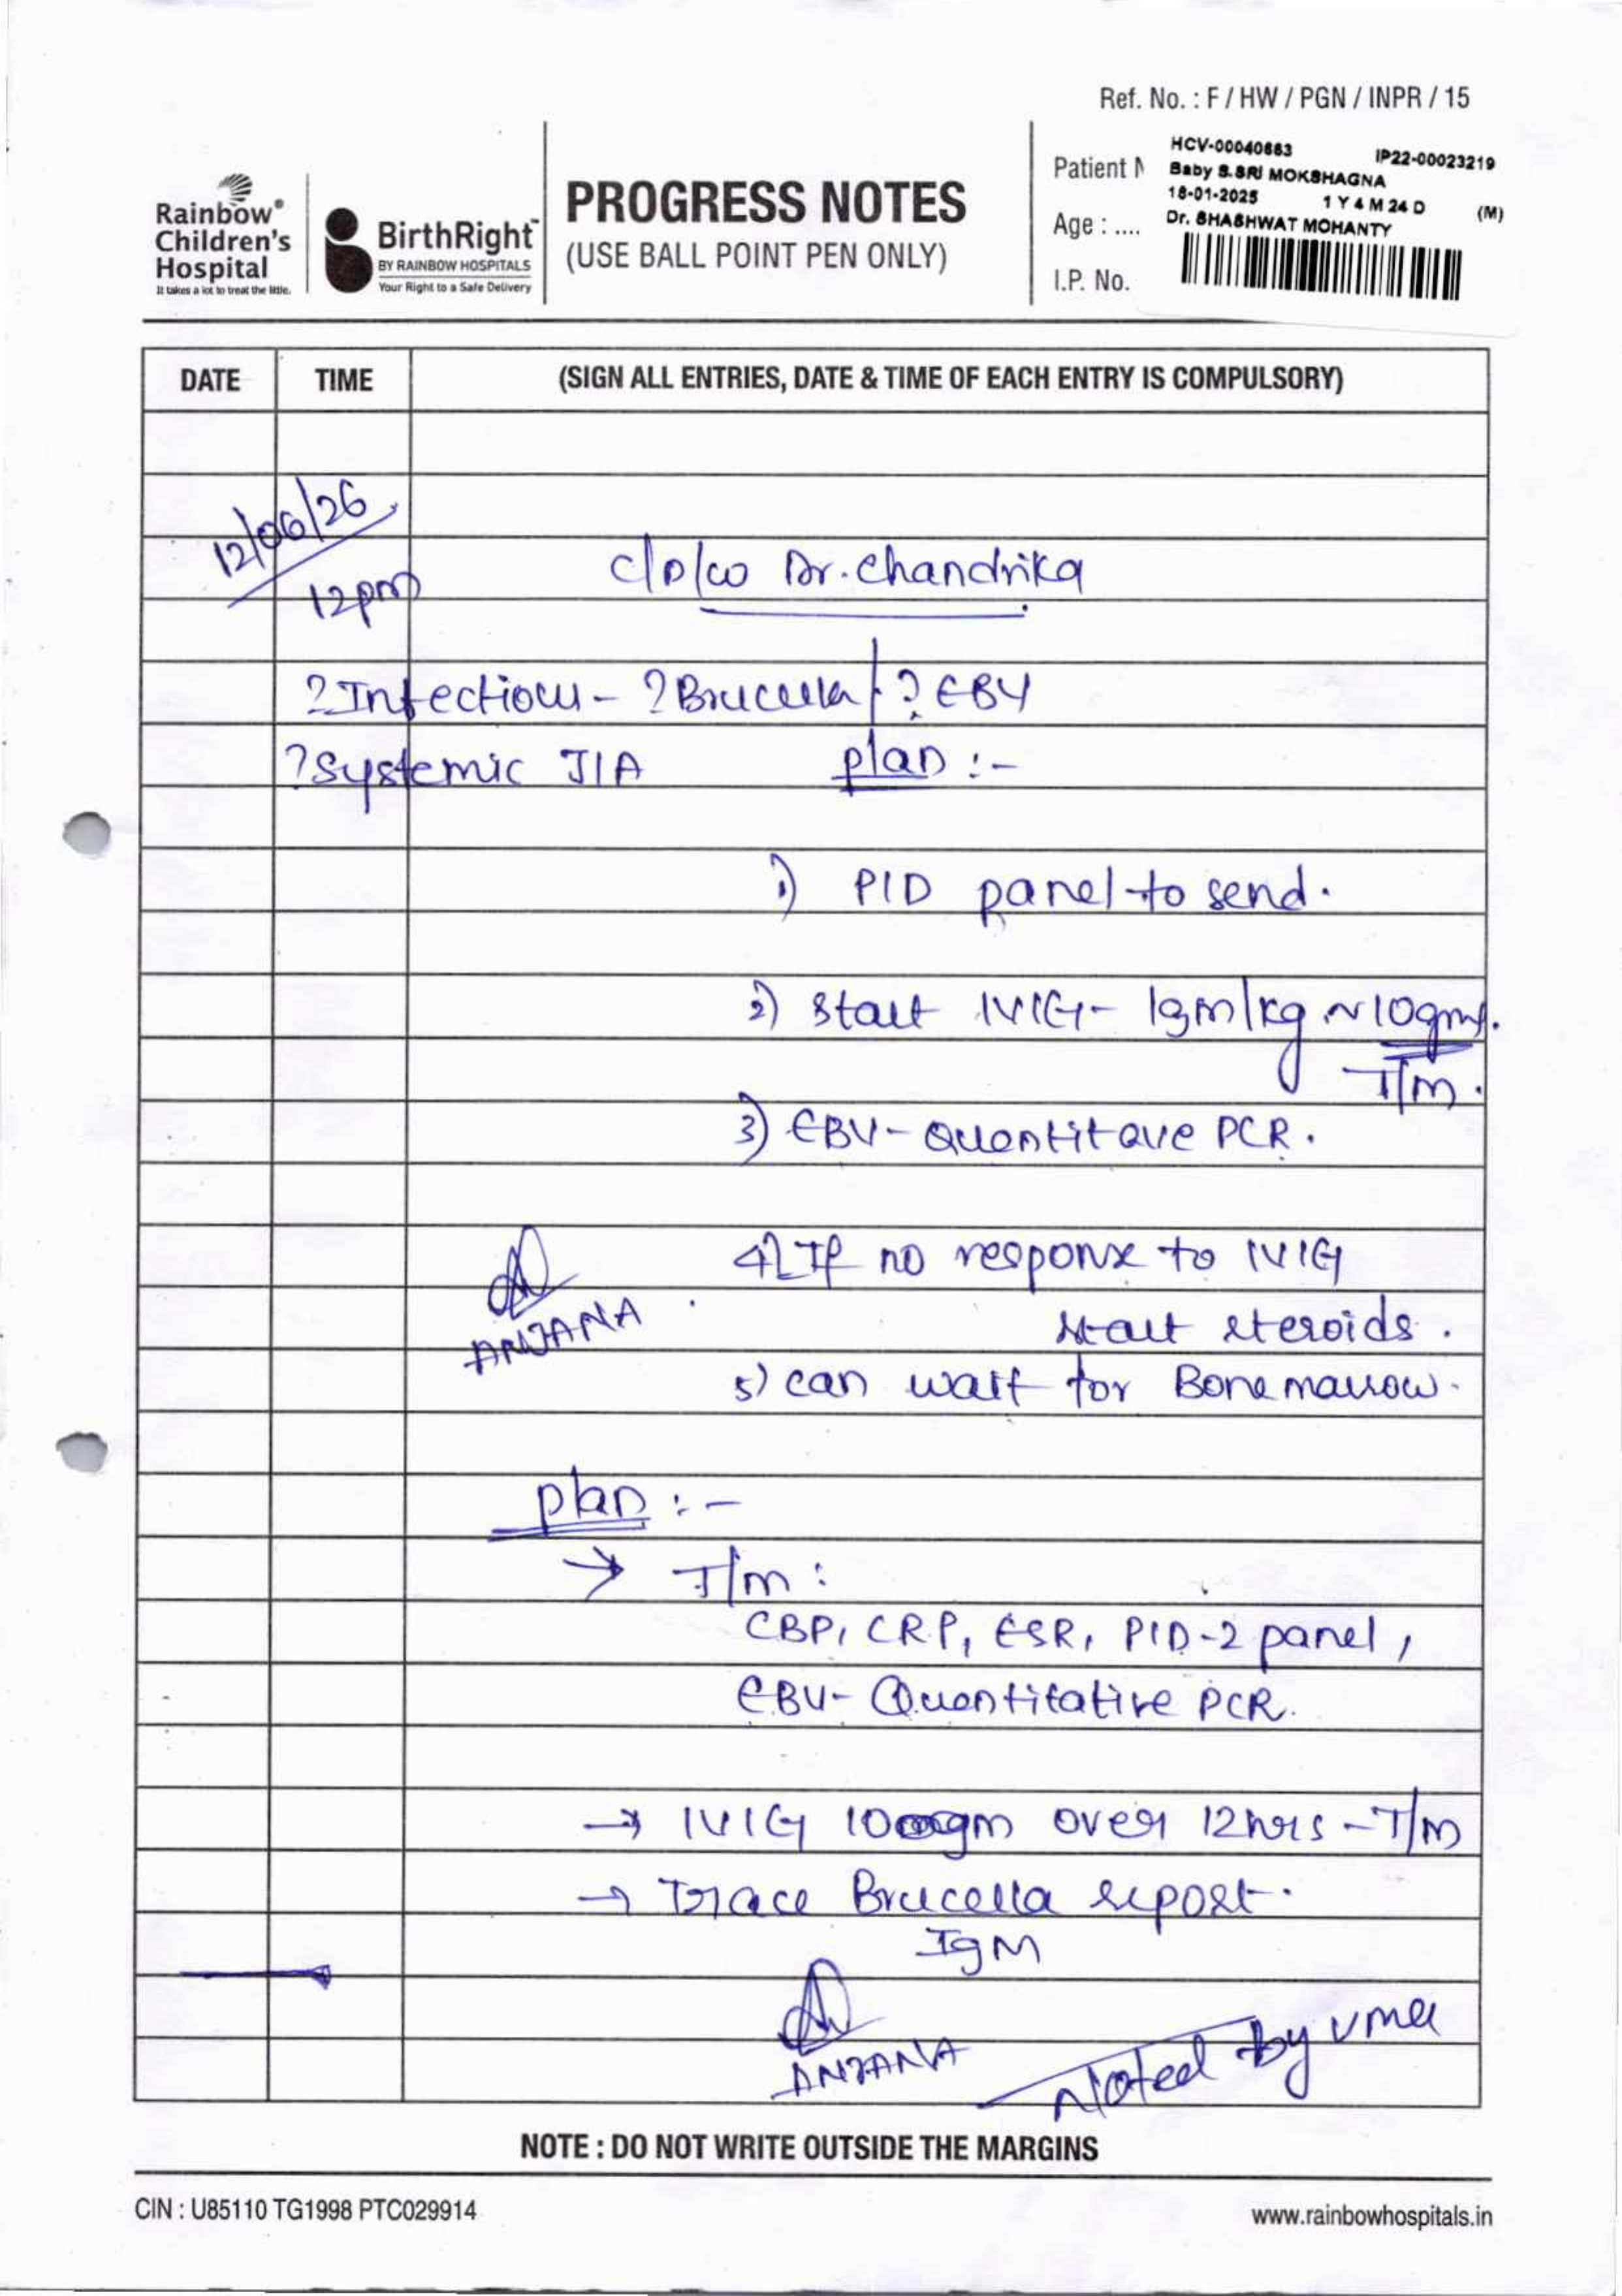 Ref. No. : F / HW / PGN / INPR / 15
Rainbow®
Children's
Hospital
It takes a lot to treat the little.
BirthRight™
BY RAINBOW HOSPITALS
Your Right to a Safe Delivery
PROGRESS NOTES
(USE BALL POINT PEN ONLY)
Patient N
Age : ....
I.P. No.
HCV-00040663 IP22-00023219
Baby S.SRI MOKSHAGNA
18-01-2025 1 Y 4 M 24 D (M)
Dr. SHASHWAT MOHANTY
DATE TIME (SIGN ALL ENTRIES, DATE & TIME OF EACH ENTRY IS COMPULSORY)
12/06/26
12pm
c/D/w Dr. Chandrika
? Infectious - ? Brucella / ? EBV
? Systemic JIA plan :-
1) PID panel to send.
2) Start IVIG - 1gm/kg ~ 10gms.
T/m.
3) EBV - Quantitave PCR.
4) If no response to IVIG
start steroids.
ANJANA
5) can wait for Bone marrow.
plan :-
→ T/m :
CBP, CRP, ESR, PID-2 panel,
EBV - Quantitative PCR.
→ IVIG 10gm over 12hrs - T/m
→ Trace Brucella report.
IgM
ANJANA
Noted by Uma
NOTE : DO NOT WRITE OUTSIDE THE MARGINS
CIN : U85110 TG1998 PTC029914
www.rainbowhospitals.in